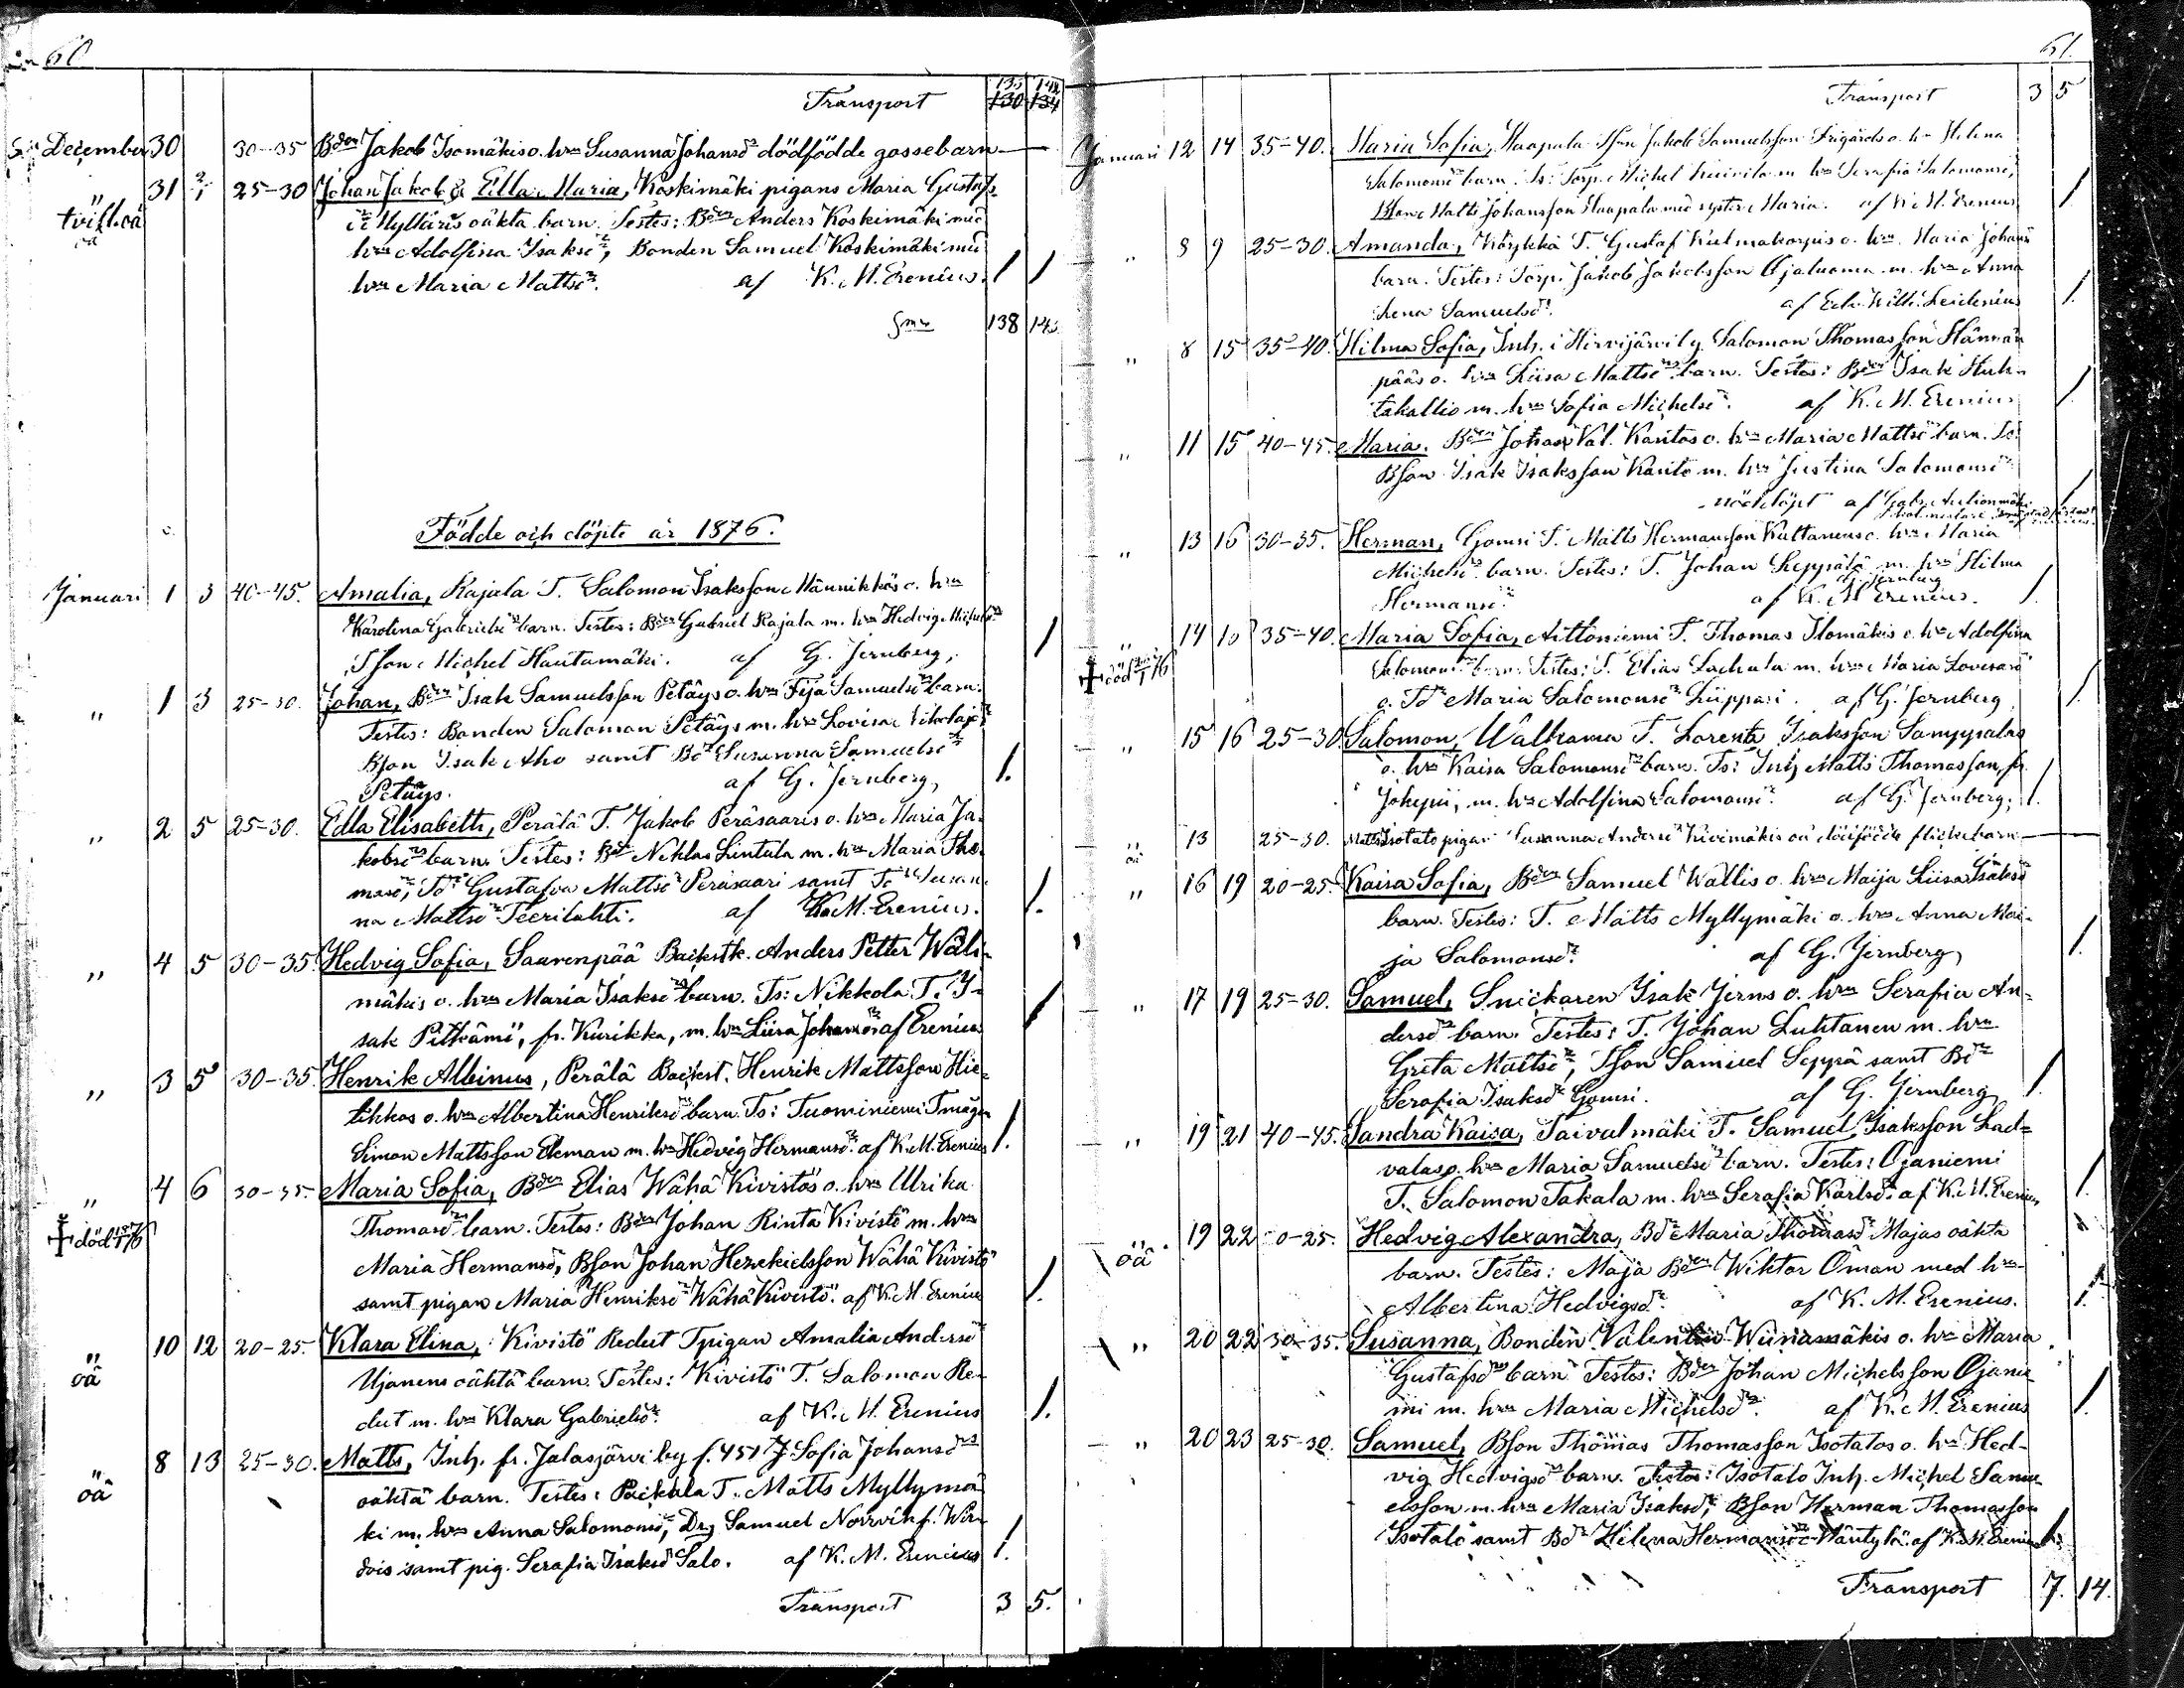 60
Transport 135 142
130 134
December 30 30-35 Bden Jakob Isomäkis o. hru Susanna Johansdr dödfödde gossebarn
" 31 25-30 Johan Jakob & Edla Maria, Koskimäki pigans Maria Gustafs
tvill. oä
Myllaris oäkta barn. Testes: Bden Anders Koskimäki med
hru Adolfina Isaksdr, Bonden Samuel Koskimäki med
hru Maria Mattsdr. af K. M. Erenius. / /
Sma 138 143
Födde och döpte år 1876.
Januari 1 3 40-45. Amalia, Rajala T. Salomon Isaksson Männikkös o. hru
Karolina Gabrielsdrs barn. Testes: Bden Gabriel Rajala m. hru Hedvig Michelsdr
Tson Michel Hautamäki. af G. Jernberg, /
" 1 3 25-30. Johan, Bden Isak Samuelsson Petäys o. hru Fija Samuelsdrs barn.
Testes: Bonden Salomon Petäys m. hru Lovisa Nikolajdr
Bson Isak Aho samt Bdr Susanna Samuelsdr
Petäys. af G. Jernberg, /.
" 2 5 25-30. Edla Elisabeth, Perälä T. Jakob Peräsaaris o. hru Maria Ja-
kobsdrs barn. Testes: Bdn Niklas Lintala m. hru Maria Tho-
masdr, Tdr Gustafva Mattsdr Peräsaari samt Tdr Susan-
na Mattsdr Teerilahti. af K. M. Erenius. /.
" 4 5 30-35. Hedvig Sofia, Saarenpää Backstk. Anders Petter Wäli-
mäkis o. hru Maria Isaksdrs barn. Ts: Nikkola T. I-
sak Pitkämö, fr. Kurikka, m. hru Liisa Johansdr af Erenius /
" 3 5 30-35. Henrik Albinus, Perälä Backst. Henrik Mattsson Hie-
tikkos o. hru Albertina Henriksdrs barn. Ts: Tuominiemi Tmågen
Simon Mattsson Ekman m. hru Hedvig Hermansdr. af K. M. Erenius /.
" 4 6 30-35. Maria Sofia, Bden Elias Wähä Kivistös o. hru Ulrika
död 76
Thomasdrs barn. Testes: Bden Johan Rinta Kivistö m. hru
Maria Hermansdr, Bson Johan Hezekielsson Wähä Kivistö
samt pigan Maria Henriksdr Wähä Kivistö. af K. M. Erenius /.
" 10 12 20-25. Klara Elina, Kivistö Redut Tpigan Amalia Andersdr
oä
Ujanens oäkta barn. Testes: Kivistö T. Salomon Re-
dut m. hru Klara Gabrielsdr. af K. M. Erenius /.
" 8 13 25-30. Matts, Inh. fr. Jalasjärvi by f. 451 J. Sofia Johansdrs
oä
oäkta barn. Testes: Packala T. Matts Myllymä-
ki m. hru Anna Salomonsdr, Drg Samuel Norrvik f. Wir-
dois samt pig. Serafia Isaksdr Salo. af K. M. Erenius /.
Transport 3 5.
61.
Transport 3 5
Januari 12 14 35-40. Maria Sofia, Haapala Tson Jakob Samuelsson Frigårds o. hru Helena
Salomonsdrs barn. Ts: Torp. Michel m. hru Serafia Salomonsdr,
Bson Matts Johansson Haapala med syster Maria. af K. M. Erenius /
" 8 9 25-30. Amanda, Köykkä T. Gustaf Kulmakorpis o. hru Maria Johans
barn. Testes: Torp. Jakob Jakobsson Ojaluoma m. hru Anna
Lena Samuelsdr. af Edv. Wilh. Leidenius /.
" 8 15 35-40. Hilma Sofia, Inh. i Hirvijärvi by Salomon Thomasson Hännän
pääs o. hru Liisa Mattsdrs barn. Testes: Bden Isak Huh-
takallio m. hru Sofia Michelsdr. af K. M. Erenius /.
" 11 15 40-45. Maria. Bden Johan Val. Kantos o. hru Maria Mattsdr barn. Ts:
Bson Isak Isaksson Kanto m. hru Justina Salomonsdr
nöddöpt af Gabr. Antionmäki
" 13 16 30-35. Herman, Gomsi T. Matts Hermansson Kultanens o. hru Maria
Michelsdrs barn. Testes: T. Johan Leppälä m. hru Hilma
Hermansdr. af G. Jernberg K. M. Erenius. /.
" 14 16 35-40. Maria Sofia, Aittoniemi T. Thomas Ilomäkis o. hru Adolfina
död 76
Salomonsdrs barn. Testes: T. Elias Lachala m. hru Maria Lovisasdr
o. Tdr Maria Salomonsdr Lüppari. af G. Jernberg /.
" 15 16 25-30 Salomon, Walkama T. Lorents Isaksson Samppalas
o. hru Kaisa Salomonsdrs barn. Ts: Inh Matts Thomasson, fr.
Jokipii, m. hru Adolfina Salomonsdr. af G. Jernberg, /.
" 13 25-30. Matts Isotalo pigan Susanna Andersdr Kivimäkis oä dödfödde flickebarn
oä
" 16 19 20-25. Kaisa Sofia, Bden Samuel Wallis o. hru Maija Liisa Isaksdr
barn. Testes: T. Matts Myllymäki o. hru Anna Mai-
ja Salomonsdr. af G. Jernberg, /.
" 17 19 25-30. Samuel, Snickaren Isak Jerns o. hru Serafia An-
dersdrs barn. Testes: T. Johan Luhtanen m. hru
Greta Mattsdr, Tson Samuel Seppä samt Bdr
Serafia Isaksdr Gomsi. af G. Jernberg /.
" 19 21 40-45. Sandra Kaisa, Taivalmäki T. Samuel Isaksson Lad-
valas o. hru Maria Samuelsdrs barn. Testes: Ojaniemi
T. Salomon Takala m. hru Serafia Karlsdr. af K. M. Erenius /.
" 19 22 20-25. Hedvig Alexandra, Bdr Maria Thomasdr Majas oäkta
oä
barn. Testes: Maja Bden Wiktor Öman med hru
Albertina Hedvigsdr. af K. M. Erenius. /.
" 20 22 30-35. Susanna, Bonden Valentin Wiinamäkis o. hru Maria
Gustafsdrs barn Testes: Bden Johan Michelsson Ojanie-
mi m. hru Maria Michelsdr. af K. M. Erenius /.
" 20 23 25-30. Samuel, Bson Thomas Thomasson Isotalos o. hru Hed-
vig Hedvigsdrs barn. Testes: Isotalo Inh. Michel Samu-
elsson m. hru Maria Isaksdr, Bson Herman Thomasson
Isotalo samt Bdr Helena Hermansdr Mäntylä. af K. M. Erenius /.
Transport 7. 14.